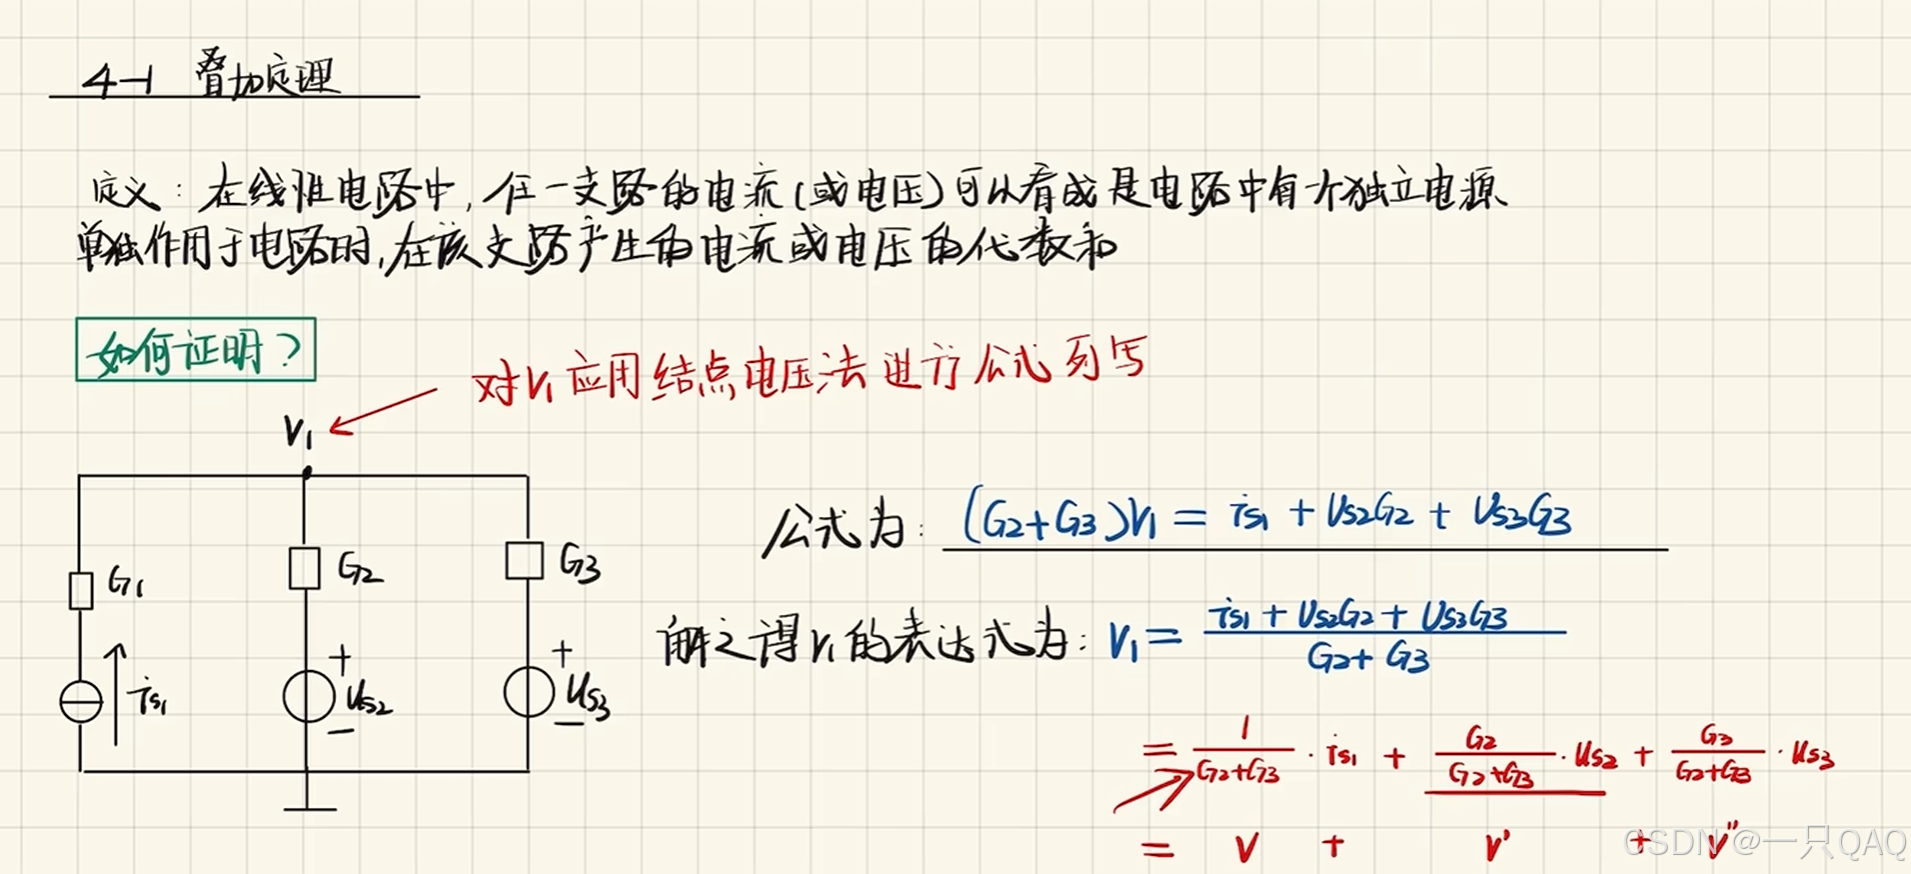 4-1 叠加定理
定义：在线性电路中，任一支路的电流（或电压）可以看成是电路中有个独立电源
单独作用于电路时，在该支路产生的电流或电压的代数和
如何证明？
对V₁应用结点电压法进行公式列写
V₁
G₁
G₂
G₃
is₁
+
Us₂
−
+
Us₃
−
公式为：(G₂+G₃)V₁ = is₁ + Us₂G₂ + Us₃G₃
解之得V₁的表达式为：V₁ = (is₁ + Us₂G₂ + Us₃G₃) / (G₂+G₃)
= 1/(G₂+G₃) · is₁ + G₂/(G₂+G₃) · Us₂ + G₃/(G₂+G₃) · Us₃
= V + V' + V''
CSDN @一只QAQ